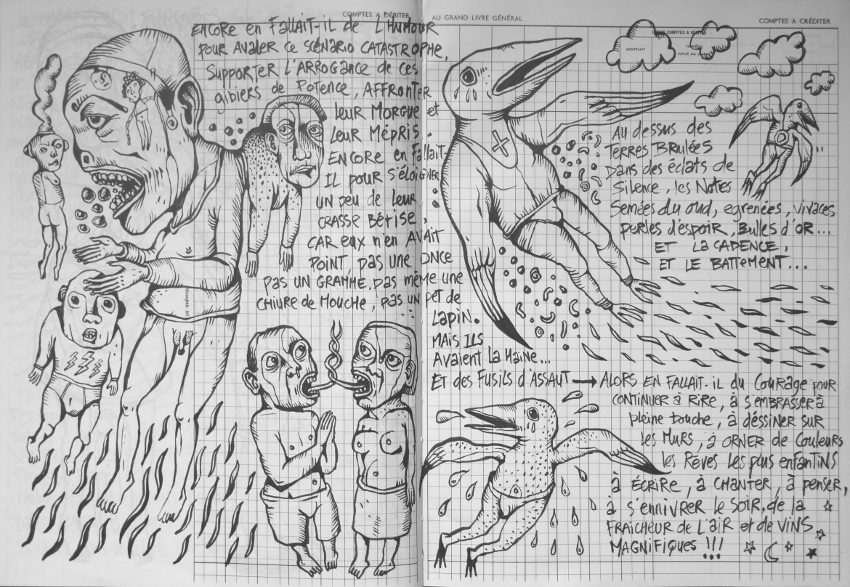 COMPTES A DÉBITER
ENCORE en FALLAIT-IL de L'HUMOUR
POUR AVALER CE SCÉNARIO CATASTROPHE,
SUPPORTER L'ARROGANCE DE CES
gibiers de POTENCE, AFFRONTER
LEUR MORGUE et
LEUR MÉPRIS.
ENCORE en FALLAIT-
IL POUR S'ÉLOIGNER
UN PEU de LEUR
CRASSE BÊTISE,
CAR EUX n'EN AVAIT
POINT, PAS UNE ONCE
PAS UN GRAMME, PAS MÊME UNE
CHIURE DE MOUCHE, PAS UN PET DE
LAPIN.
MAIS ILS
AVAIENT LA HAINE...
ET des FUSILS d'ASSAUT → ALORS EN FALLAIT-IL du COURAGE POUR
CONTINUER à RIRE, à S'EMBRASSER à
pleine bouche, à dessiner SUR
les MURS, à ORNER de COULEURS
les RÊVES LES PLUS ENFANTINS
à ÉCRIRE, à CHANTER, à PENSER,
à S'ENNIVRER le SOIR, de la
FRAÎCHEUR de L'AIR et de VINS
MAGNIFIQUES !!!
AU GRAND LIVRE GÉNÉRAL
COMPTES A CRÉDITER
AU dessus des
TERRES BRULÉES
DANS des ÉCLATS de
SILENCE, LES NOTES
SEMÉES du oud, egrenées, vivaces
PERLES d'ESPOIR, BULLES d'OR...
ET LA CADENCE,
ET LE BATTEMENT...